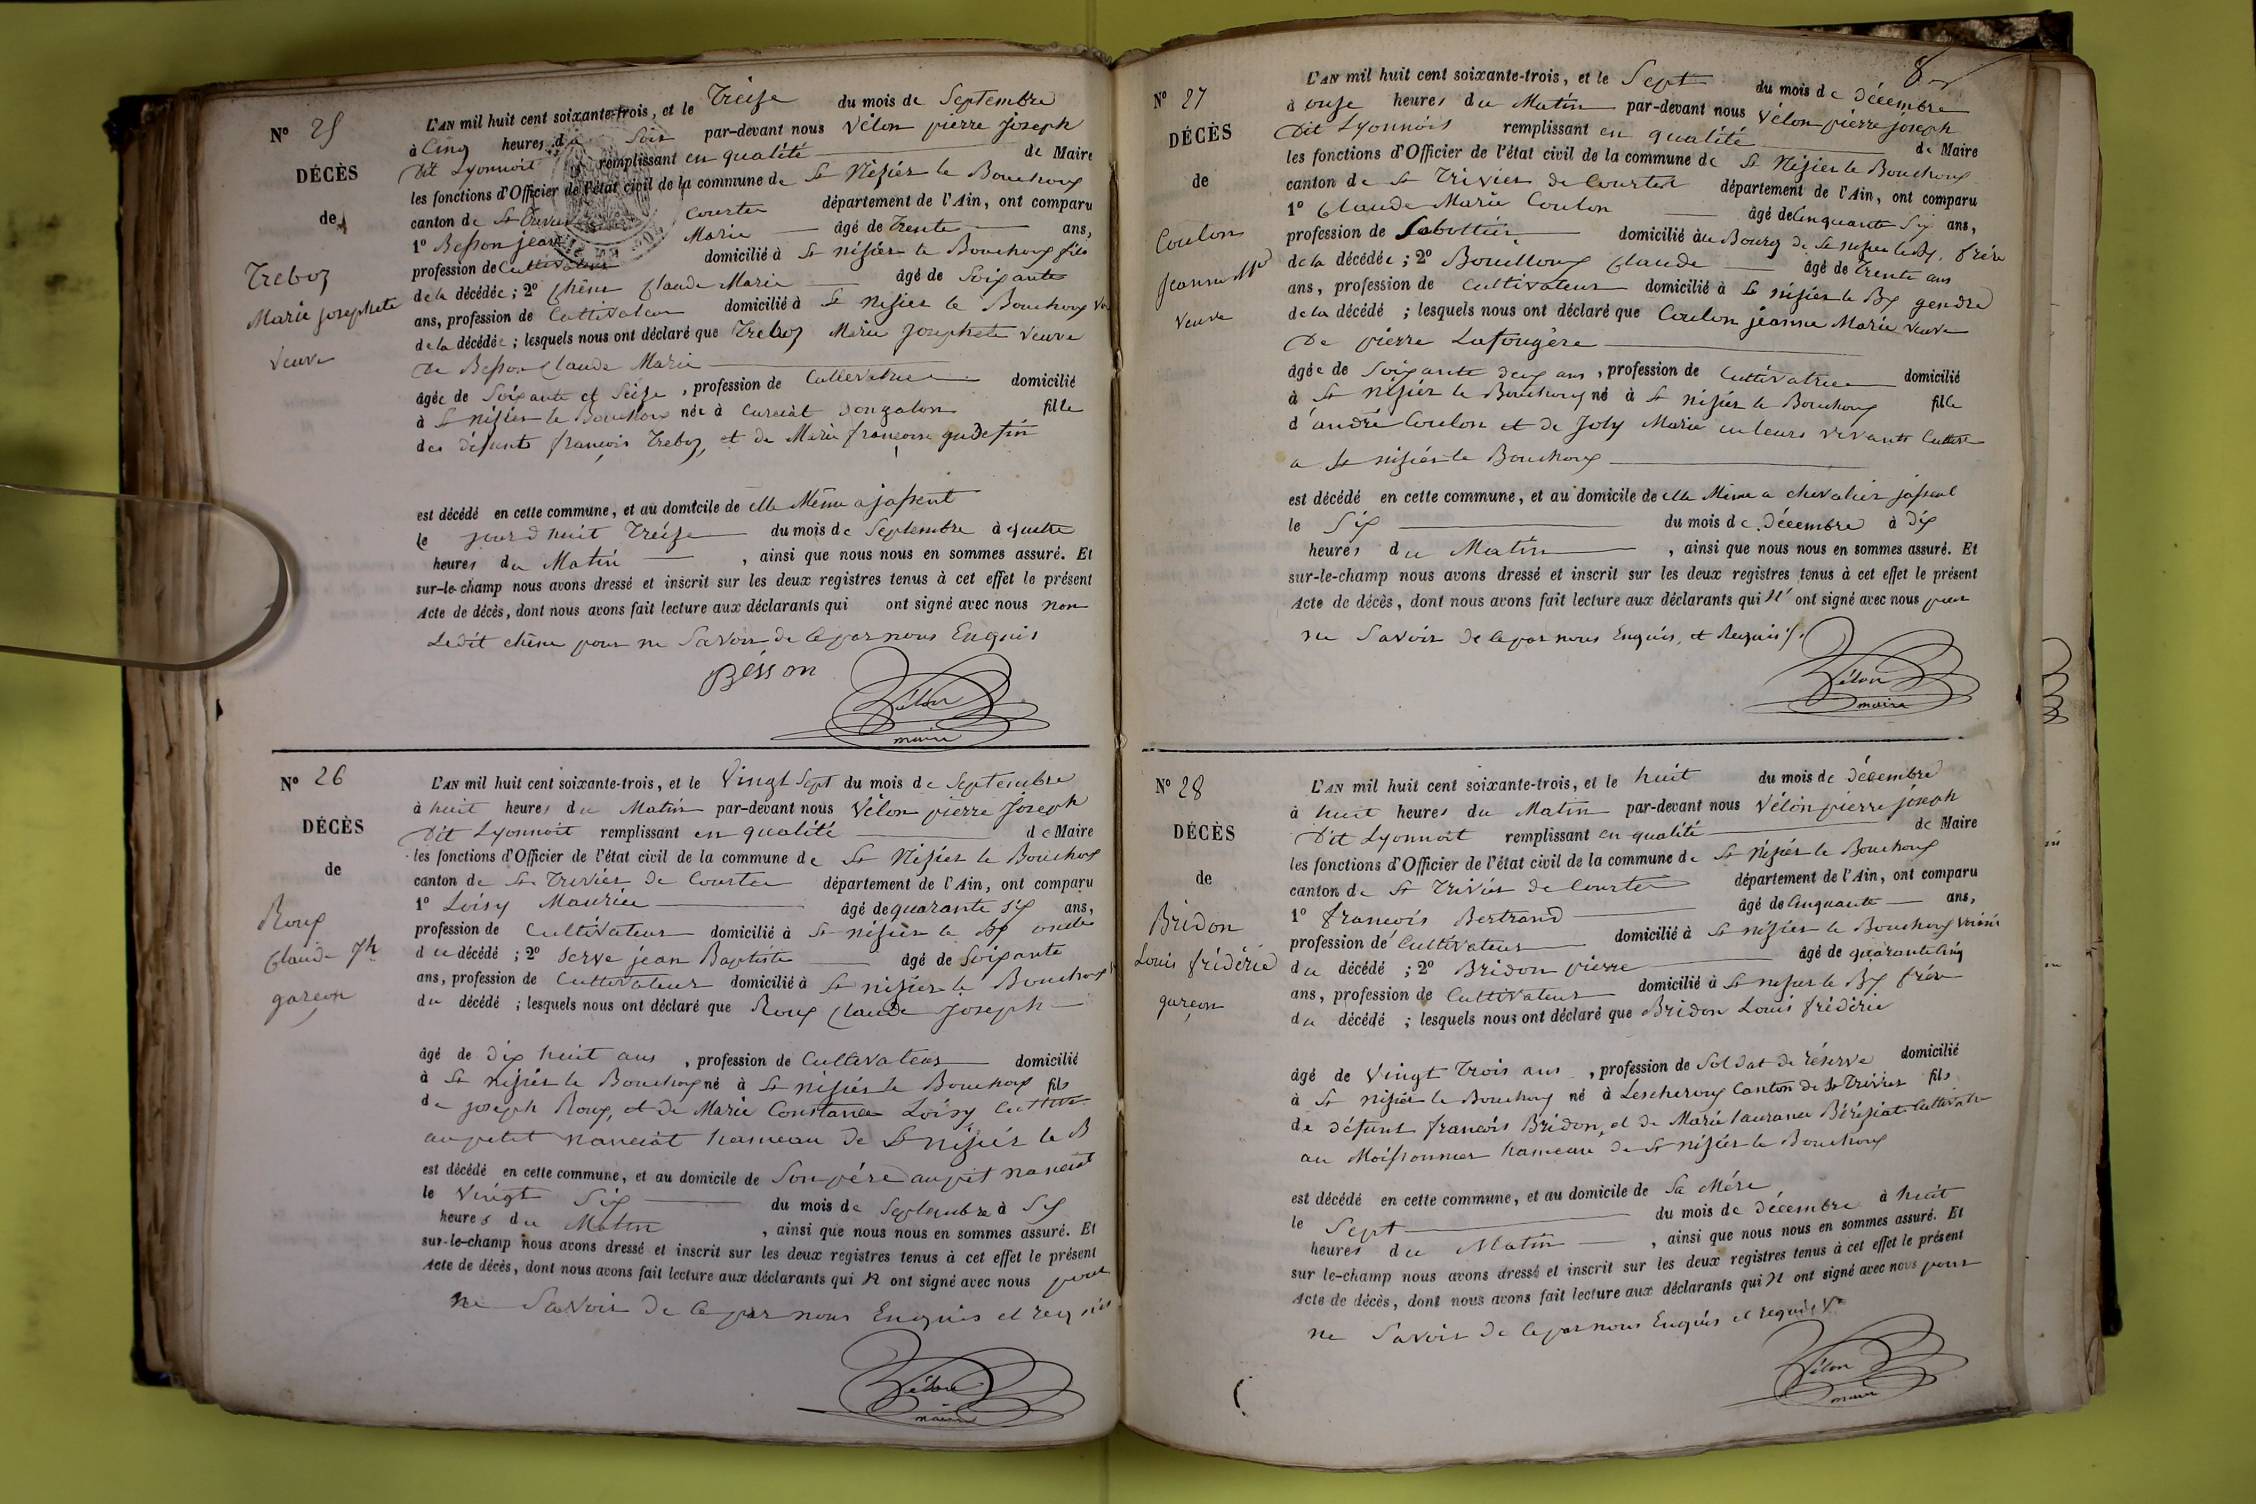 N° 25
DÉCÈS
de
Treboz
Marie josephete
veuve
L'AN mil huit cent soixante-trois, et le Treize du mois de Septembre
à Cinq heures du Soir par-devant nous Vélon pierre joseph
Dit Lyonnoit remplissant en qualité de Maire
les fonctions d'Officier de l'état civil de la commune de St Nizier le Bouchoux
canton de St Trivier Courtes département de l'Ain, ont comparu
1° Besson jean Marie âgé de Trente ans,
profession de Cultivateur domicilié à St nizier le Bouchoux fils
de la décédée ; 2° Chêne Claude Marie âgé de Soixante
ans, profession de Cultivateur domicilié à St Nizier le Bouchoux
de la décédée ; lesquels nous ont déclaré que Treboz Marie Josephete veuve
De Besson Claude Marie
âgée de Soixante et Seize , profession de Cultivatrice domicilié
à St nizier le Bouchoux née à Curciat Dongalon fille
des défunts françois Treboz, et de Marie françoise
est décédé en cette commune, et au domicile de elle Même a jassent
le jourd'huit Treize du mois de Septembre à quatre
heures du Matin , ainsi que nous nous en sommes assuré. Et
sur-le-champ nous avons dressé et inscrit sur les deux registres tenus à cet effet le présent
Acte de décès, dont nous avons fait lecture aux déclarants qui ont signé avec nous non
Ledit chêne pour ne Savoir de ce par nous Enquis
Bésson
Vélon
maire
N° 26
DÉCÈS
de
Roux
Claude Jh
garçon
L'AN mil huit cent soixante-trois, et le Vingt Sept du mois de Septembre
à huit heures du Matin par-devant nous Vélon pierre Joseph
Dit Lyonnoit remplissant en qualité de Maire
les fonctions d'Officier de l'état civil de la commune de St Nizier le Bouchoux
canton de St Trivier de Courtes département de l'Ain, ont comparu
1° Loisy Maurice âgé de quarante six ans,
profession de Cultivateur domicilié à St nizier le Bx oncle
du décédé ; 2° Serve jean Baptiste âgé de Soixante
ans, profession de Cultivateur domicilié à St nizier le Bouchoux
du décédé ; lesquels nous ont déclaré que Roux Claude Joseph
âgé de dix huit ans , profession de Cultivateur domicilié
à St nizier le Bouchoux né à St nizier le Bouchoux fils
de joseph Roux, et de Marie Constance Loisy
au petit nanciat hameau de St nizier le B
est décédé en cette commune, et au domicile de Son père au pit nanciat
le Vingt Six du mois de Septembre à Six
heures du Matin , ainsi que nous nous en sommes assuré. Et
sur-le-champ nous avons dressé et inscrit sur les deux registres tenus à cet effet le présent
Acte de décès, dont nous avons fait lecture aux déclarants qui n' ont signé avec nous pour
ne Savoir de ce par nous Enquis et requis
Vélon
maire
8
N° 27
DÉCÈS
de
Coulon
Jeanne Mie
veuve
L'AN mil huit cent soixante-trois, et le Sept du mois de Décembre
à onze heures du Matin par-devant nous Vélon pierre joseph
Dit Lyonnois remplissant en qualité de Maire
les fonctions d'Officier de l'état civil de la commune de St Nizier le Bouchoux
canton de St Trivier de Courtes département de l'Ain, ont comparu
1° Claude Marie Coulon âgé de Cinquante Six ans,
profession de Sabottier domicilié à au Bourg de St nizier le Bx, frére
de la décédée ; 2° Bouilloux Claude âgé de Trente ans
ans, profession de Cultivateur domicilié à St nizier le Bx gendre
de la décédé ; lesquels nous ont déclaré que Coulon jeanne Marie veuve
De pierre Lafougère
âgée de Soixante deux ans , profession de Cultivatrice domicilié
à St nizier le Bouchoux né à St nizier le Bouchoux fille
d'andré Coulon et de Joly Marie en leurs vivants
a St nizier le Bouchoux
est décédé en cette commune, et au domicile de elle Même a chevalier jassent
le Six du mois de Décembre à dix
heures du Matin , ainsi que nous nous en sommes assuré. Et
sur-le-champ nous avons dressé et inscrit sur les deux registres tenus à cet effet le présent
Acte de décès, dont nous avons fait lecture aux déclarants qui n' ont signé avec nous pour
ne Savoir de ce par nous Enquis, et Requis
Vélon
maire
N° 28
DÉCÈS
de
Bridon
Louis frédéric
garçon
L'AN mil huit cent soixante-trois, et le huit du mois de décembre
à huit heures du Matin par-devant nous Vélon pierre joseph
Dit Lyonnoit remplissant en qualité de Maire
les fonctions d'Officier de l'état civil de la commune de St Nizier le Bouchoux
canton de St Trivier de Courtes département de l'Ain, ont comparu
1° francois Bertrand âgé de Cinquante ans,
profession de Cultivateur domicilié à St nizier le Bouchoux voisin
du décédé ; 2° Bridon pierre âgé de quarante Cinq
ans, profession de Cultivateur domicilié à St nizier le Bx frére
du décédé ; lesquels nous ont déclaré que Bridon Louis frédéric
âgé de Vingt Trois ans , profession de Soldat de réserve domicilié
à St nizier le Bouchoux né à Lescheroux Canton de St Trivier fils
de défunt francois Bridon, et de Marie laurance Béréziat
au Moissonnier hameau de St nizier le Bouchoux
est décédé en cette commune, et au domicile de Sa Mére
le Sept du mois de décembre à huit
heures du Matin , ainsi que nous nous en sommes assuré. Et
sur le-champ nous avons dressé et inscrit sur les deux registres tenus à cet effet le présent
Acte de décès, dont nous avons fait lecture aux déclarants qui n' ont signé avec nous pour
ne Savoir de ce par nous Enquis et requis
Vélon
maire